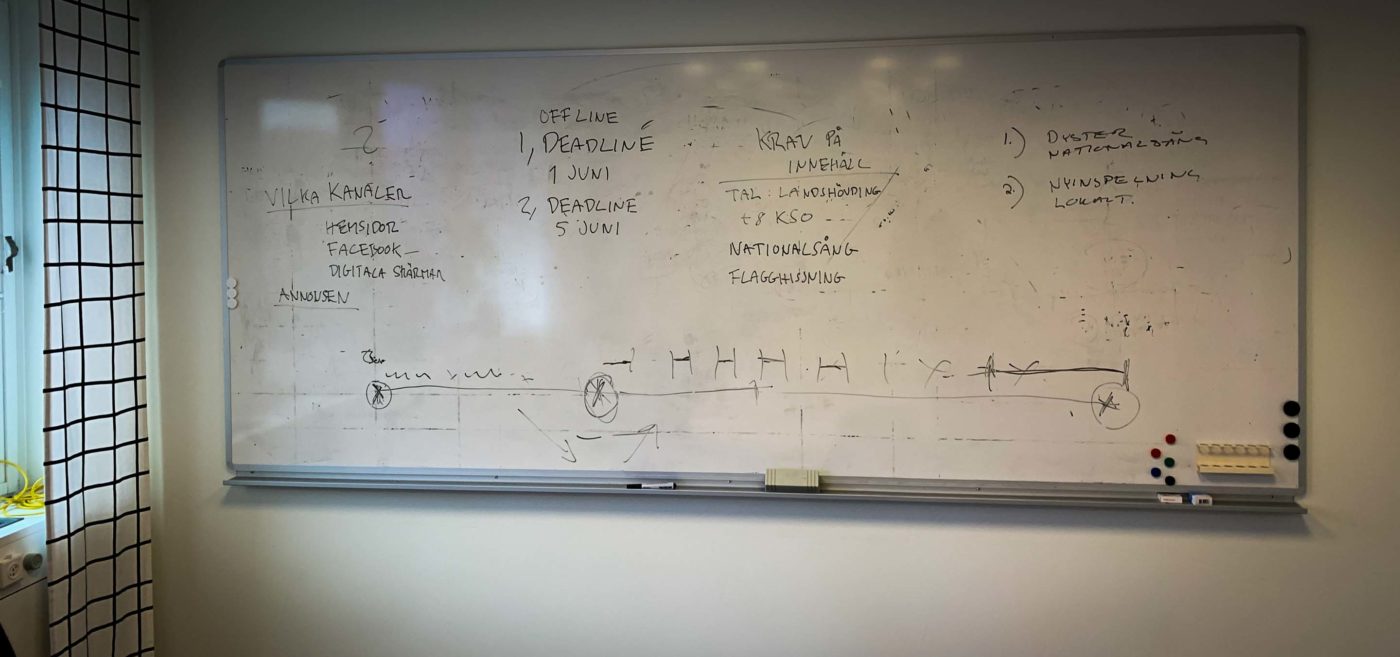 2
VILKA KANALER
HEMSIDOR
FACEBOOK
DIGITALA SKÄRMAR
ANNONSEN
OFFLINE
1, DEADLINE
1 JUNI
2, DEADLINE
5 JUNI
KRAV PÅ
INNEHÅLL
TAL: LANDSHÖVDING
+8 KSO
NATIONALSÅNG
FLAGGHISSNING
1.) DYSTER
NATIONALSÅNG
2.) NYINSPELNING
LOKALT.